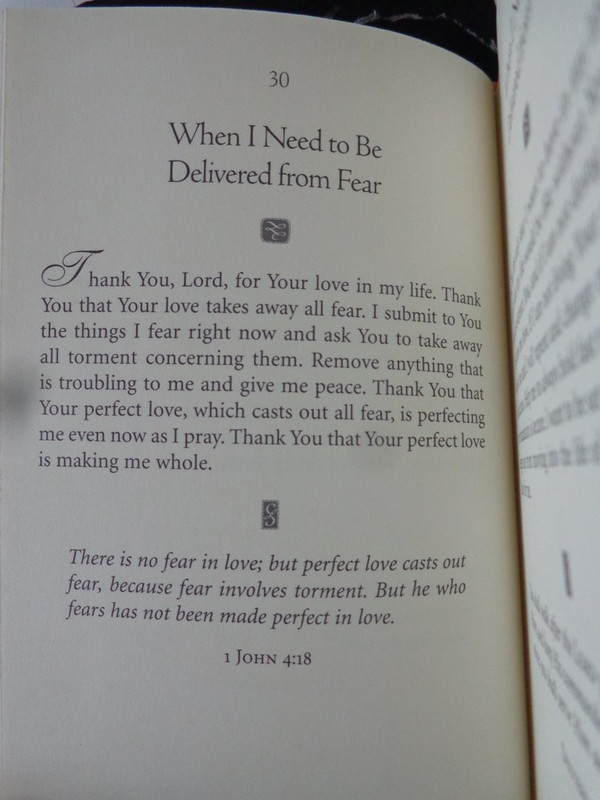 30
When I Need to Be
Delivered from Fear
Thank You, Lord, for Your love in my life. Thank
You that Your love takes away all fear. I submit to You
the things I fear right now and ask You to take away
all torment concerning them. Remove anything that
is troubling to me and give me peace. Thank You that
Your perfect love, which casts out all fear, is perfecting
me even now as I pray. Thank You that Your perfect love
is making me whole.
There is no fear in love; but perfect love casts out
fear, because fear involves torment. But he who
fears has not been made perfect in love.
1 John 4:18